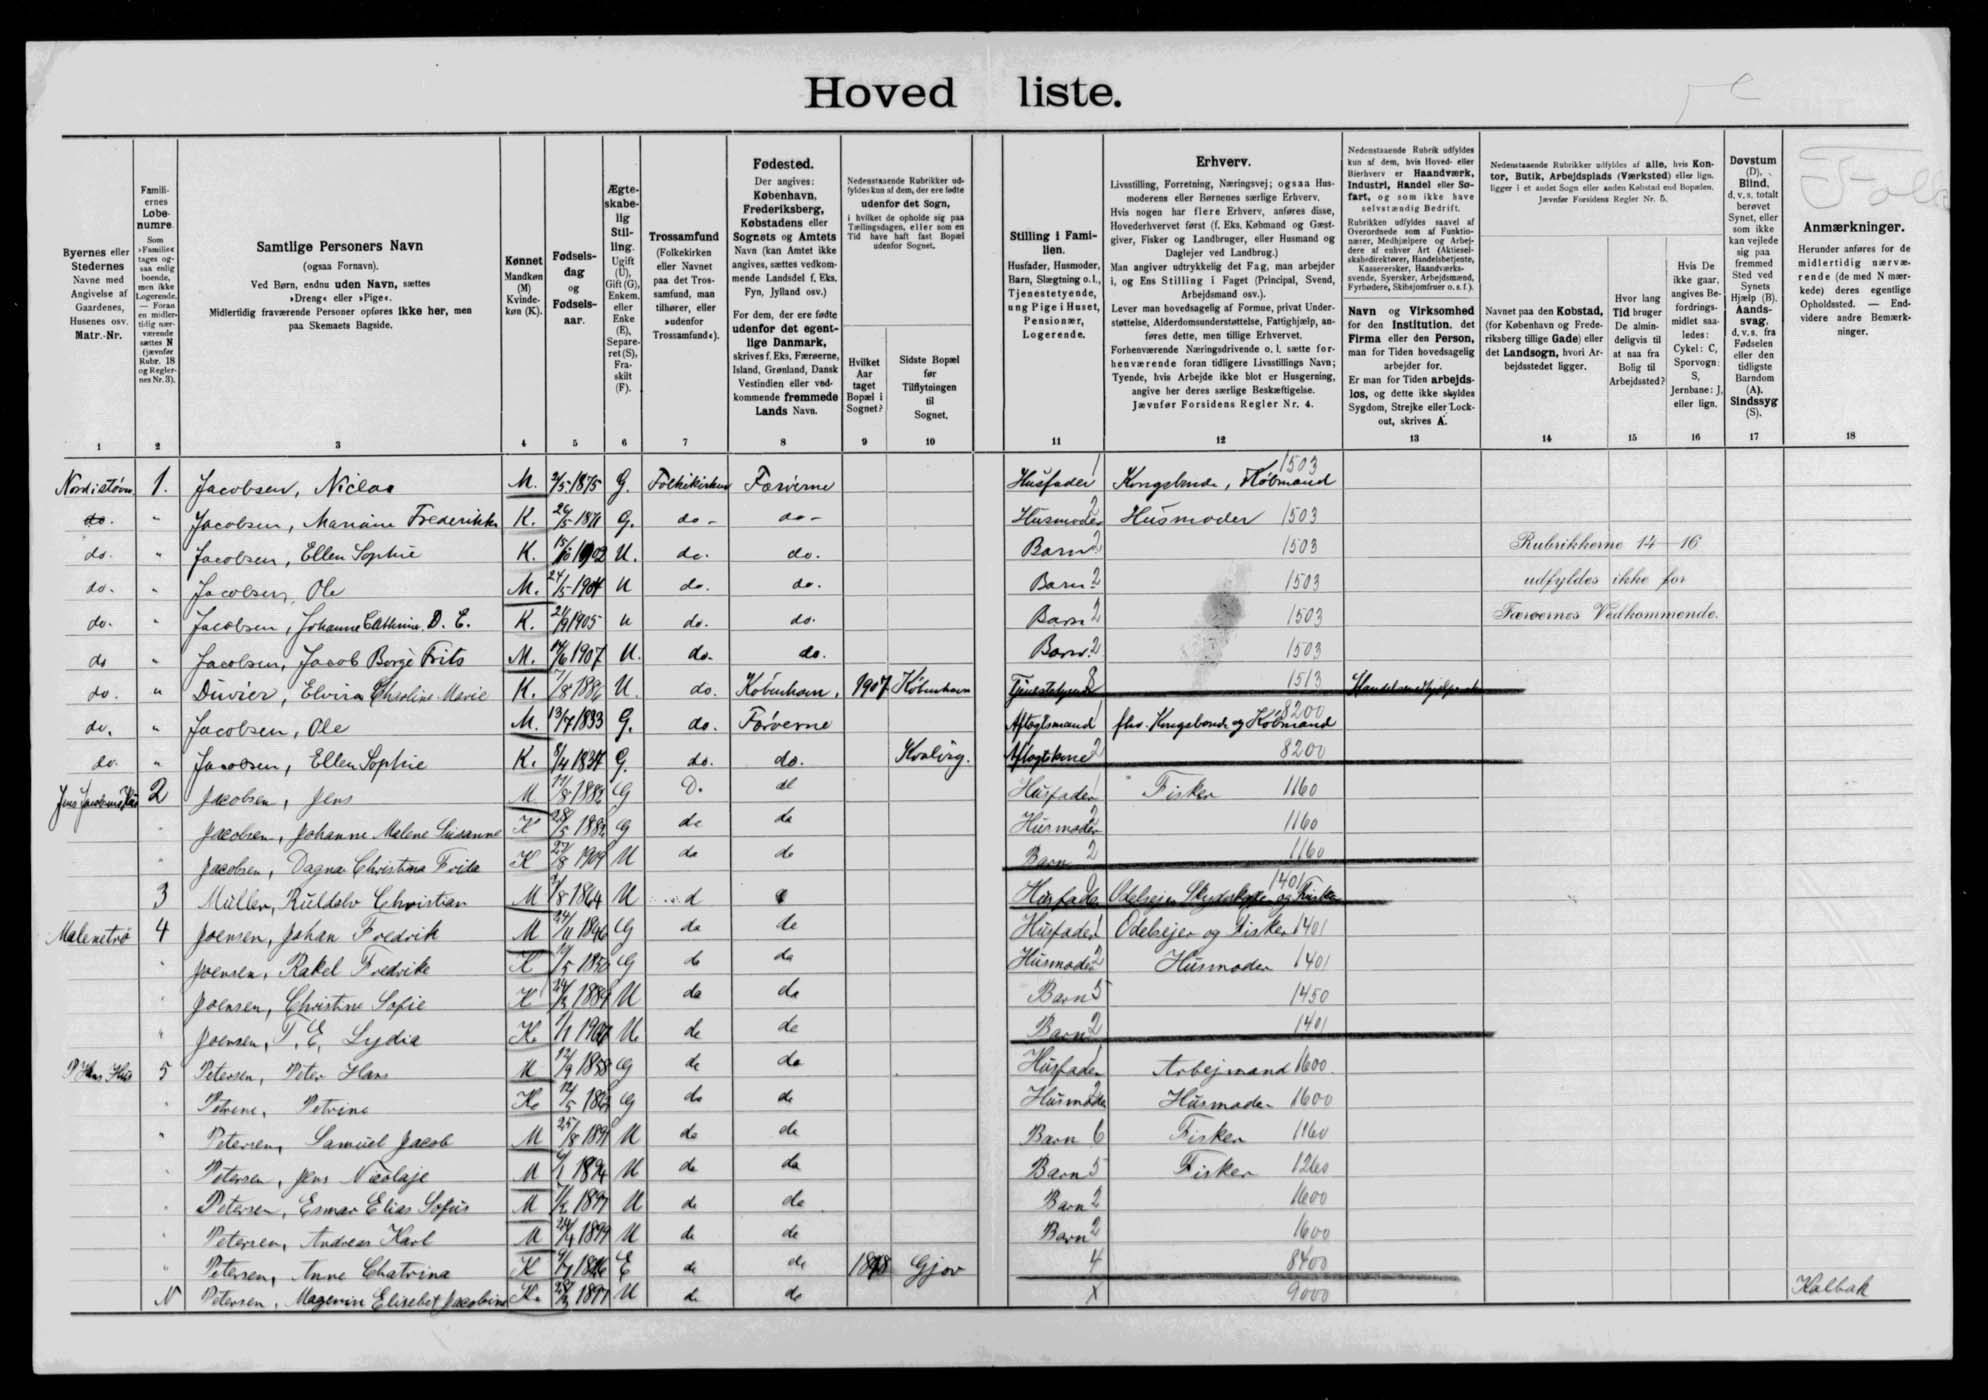 Hoved liste.
Byernes eller Stedernes Navne med Angivelse af Gaardenes, Husenes osv. Matr.-Nr.
Familiernes Løbenumre. Som »Familie« tages ogsaa enlig boende, men ikke Logerende. — Foran en midlertidig nærværende sættes N (jævnfør Rubr. 18 og Reglernes Nr. 3).
Samtlige Personers Navn (ogsaa Fornavn). Ved Børn, endnu uden Navn, sættes »Dreng« eller »Pige«. Midlertidig fraværende Personer opføres ikke her, men paa Skemaets Bagside.
Kønnet Mandkøn (M) Kvindekøn (K).
Fødselsdag og Fødselsaar.
Ægteskabelig Stilling. Ugift (U), Gift (G), Enkem. eller Enke (E), Separeret (S), Fraskilt (F).
Trossamfund (Folkekirken eller Navnet paa det Trossamfund, man tilhører, eller »udenfor Trossamfund«).
Fødested. Der angives: København, Frederiksberg, Købstadens eller Sognets og Amtets Navn (kan Amtet ikke angives, sættes vedkommende Landsdel f. Eks. Fyn, Jylland osv.) For dem, der ere fødte udenfor det egentlige Danmark, skrives f. Eks. Færøerne, Island, Grønland, Dansk Vestindien eller vedkommende fremmede Lands Navn.
Nedenstaaende Rubrikker udfyldes kun af dem, der ere fødte udenfor det Sogn, i hvilket de opholde sig paa Tællingsdagen, eller som en Tid have haft fast Bopæl udenfor Sognet.
Hvilket Aar taget Bopæl i Sognet?
Sidste Bopæl før Tilflytningen til Sognet.
Stilling i Familien. Husfader, Husmoder, Barn, Slægtning o. l., Tjenestetyende, ung Pige i Huset, Pensionær, Logerende.
Erhverv. Livsstilling, Forretning, Næringsvej; ogsaa Husmoderens eller Børnenes særlige Erhverv. Hvis nogen har flere Erhverv, anføres disse, Hovederhvervet først (f. Eks. Købmand og Gæstgiver, Fisker og Landbruger, eller Husmand og Daglejer ved Landbrug.) Man angiver udtrykkelig det Fag, man arbejder i, og Ens Stilling i Faget (Principal, Svend, Arbejdsmand osv.). Lever man hovedsagelig af Formue, privat Understøttelse, Alderdomsunderstøttelse, Fattighjælp, anføres dette, men tillige Erhvervet. Forhenværende Næringsdrivende o. l. sætte forhenværende foran tidligere Livsstillings Navn; Tyende, hvis Arbejde ikke blot er Husgerning, angive her deres særlige Beskæftigelse. Jævnfør Forsidens Regler Nr. 4.
Nedenstaaende Rubrik udfyldes kun af dem, hvis Hoved- eller Bierhverv er Haandværk, Industri, Handel eller Søfart, og som ikke have selvstændig Bedrift. Rubrikken udfyldes saavel af Overordnede som af Funktionærer, Medhjælpere og Arbejdere af enhver Art (Aktieselskabsdirektører, Handelsbetjente, Kasserersker, Haandværkssvende, Syersker, Arbejdsmænd, Fyrbødere, Skibsjomfruer o. s. f.).
Navn og Virksomhed for den Institution, det Firma eller den Person, man for Tiden hovedsagelig arbejder for. Er man for Tiden arbejdsløs, og dette ikke skyldes Sygdom, Strejke eller Lockout, skrives A.
Nedenstaaende Rubrikker udfyldes af alle, hvis Kontor, Butik, Arbejdsplads (Værksted) eller lign. ligger i et andet Sogn eller anden Købstad end Bopælen. Jævnfør Forsidens Regler Nr. 5.
Navnet paa den Købstad, (for København og Frederiksberg tillige Gade) eller det Landsogn, hvori Arbejdsstedet ligger.
Hvor lang Tid bruger De almindeligvis til at naa fra Bolig til Arbejdssted?
Hvis De ikke gaar, angives Befordringsmidlet saaledes: Cykel: C, Sporvogn: S, Jernbane: J, eller lign.
Døvstum (D), Blind, d. v. s. totalt berøvet Synet, eller som ikke kan vejlede sig paa fremmed Sted ved Synets Hjælp (B). Aandssvag, d. v. s. fra Fødselen eller den tidligste Barndom (A). Sindssyg (S).
Anmærkninger. Herunder anføres for de midlertidig nærværende (de med N mærkede) deres egentlige Opholdssted. — Endvidere andre Bemærkninger.
1 2 3 4 5 6 7 8 9 10 11 12 13 14 15 16 17 18
1. Jacobsen, Niclas M. 2/5 1875 G. Folkekirken Færøerne Husfader 1 Kongsbonde, Købmand 1503
do. " Jacobsen, Mariane Frederikke K. 26/5 1871 G. do - do - Husmoder 2 Husmoder 1503
do. " Jacobsen, Ellen Sophie K. 15/10 1902 U. do. do. Barn 2 1503 Rubrikkerne 14-16
do. " Jacobsen, Ole M. 24/5 1904 U do. do. Barn 2 1503 udfyldes ikke for
do. " Jacobsen, Johanne Cathrine D. E. K. 21/9 1905 u do. do. Barn 2 1503 Færøernes Vedkommende.
do " Jacobsen, Jacob Børge Frits M. 14/6 1907 U. do. do. Barn 2 1503
do. " Duvier, Elvira Charoline Marie K. 7/8 1886 U. do. København. 1907 København Tjenestetyende 8 1513
do. " Jacobsen, Ole M. 13/7 1833 G. do. Færøerne Aftægtsmand 1 fhv. Kongsbonde og Købmand 8200
do. " Jacobsen, Ellen Sophie K. 8/4 1834 G. do. do. Kvalvig. Aftægtskone 2 8200
2 Jacobsen, Jens M 11/8 1882 G Do de Husfader 1 Fisker 1160
" Jacobsen, Johanne Malene Susanne K 28/5 1882 G de da Husmoder 2 1160
" Jacobsen, Dagna Christina Frida K 27/8 1909 U da de Barn 2 1160
3 Müller, Christian M 1864 U d Husfader Odelsejer og Fisker 1401
Malenstrø 4 Joensen, Johan Fredrik M 24/11 1846 G da de Husfader 1 Odelsejer og Fisker 1401
" Joensen, Rakel Fredrike K 1/5 1850 G de da Husmoder 2 Husmoder 1401
" Joensen, Christine Sofie K 1884 U da da Barn 5 1450
" Joensen, T. E. Lydia K. 1/1 1904 U. de de Barn 2 1401
P Hans Hus 5 Petersen, Peter Hans M 12/9 1858 G de da Husfader 1 Arbejmand 1600
" Petrene, Petrine K. 12/5 G da de Husmoder 2 Husmoder 1600
" Petersen, Samuel Jacob M 25/8 1891 U de de Barn 6 Fisker 1160
" Petersen, Jens Nicolaje M 1894 U de da Barn 5 Fisker 1260
" Petersen, Esmar Elias Sofus M 1897 U de de Barn 2 1600
" Petersen, Andreas Karl M 24/4 1899 U de de Barn 2 1600
" Petersen, Anne Chatrina K E de de Gjov 4 8400
N Petersen, Magenin Elisebet Jacobine K. 1897 U de de X 9000 Kalbak